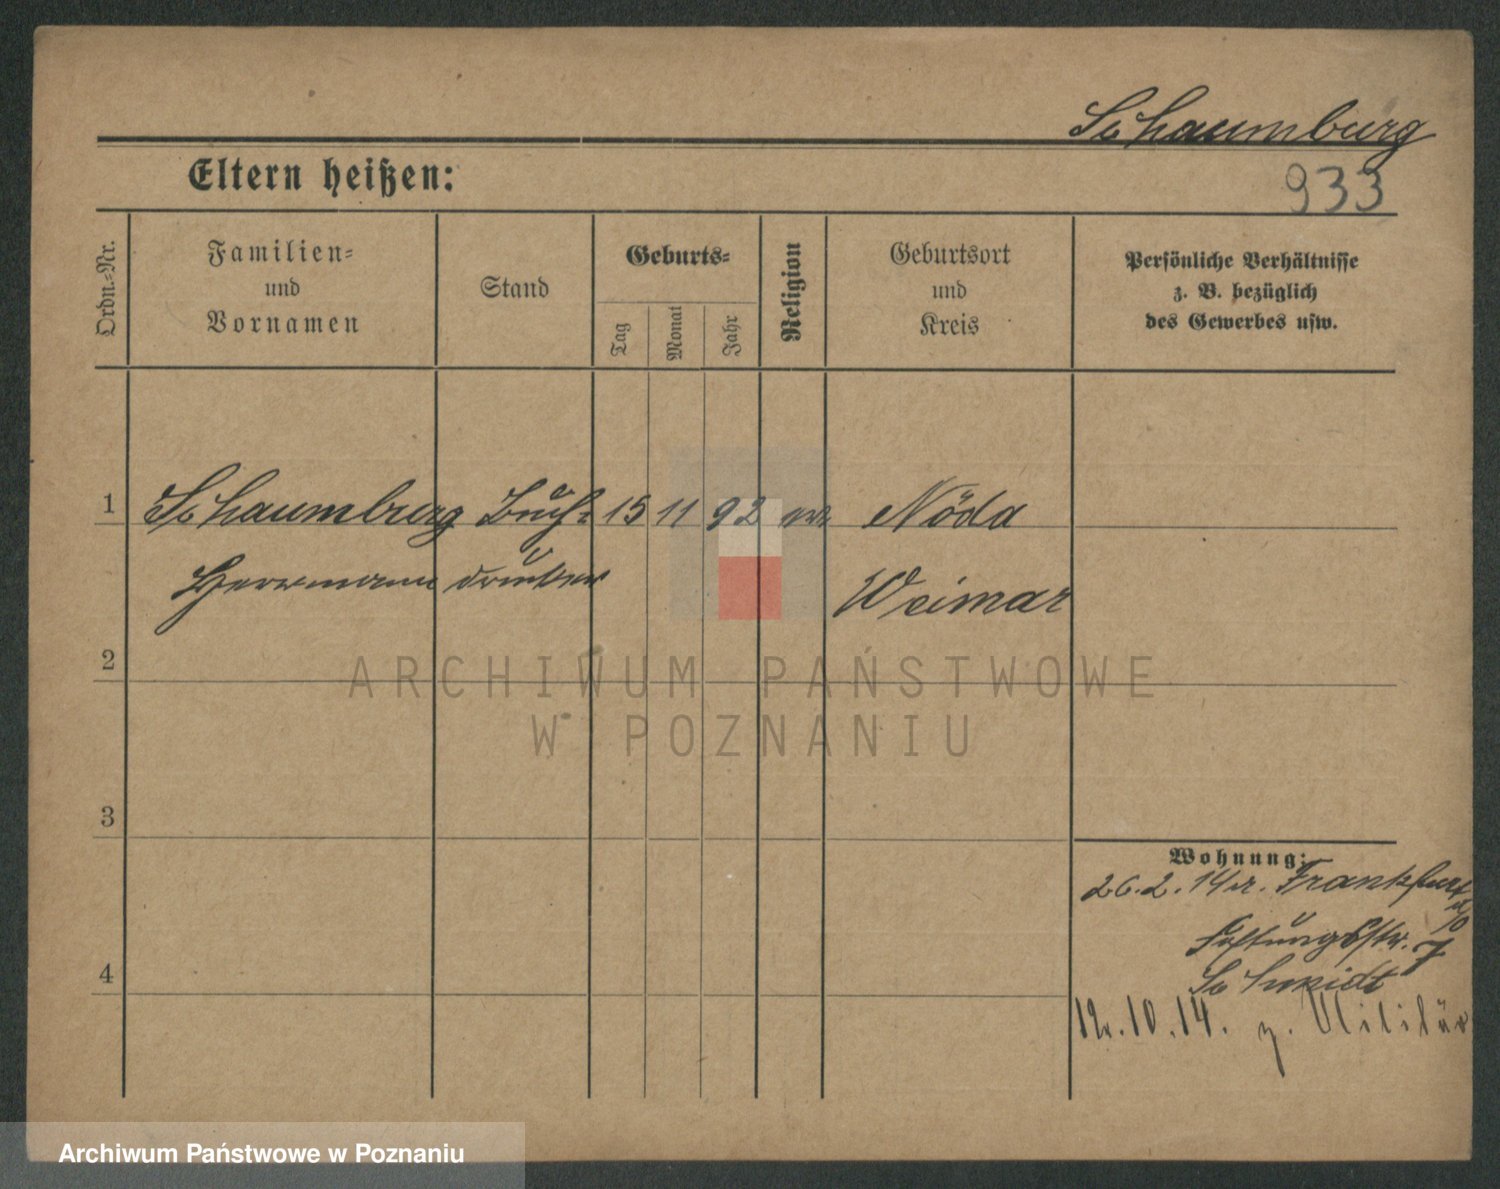 Schaumburg
Eltern heißen:
933
Ordn.-Nr.
Familien-
und
Vornamen
Stand
Geburts-
Tag
Monat
Jahr
Religion
Geburtsort
und
Kreis
Persönliche Verhältnisse
z. B. bezüglich
des Gewerbes usw.
1
Schaumburg Buch- 15 11 92 ev. Nöda
Herrmann drucker Weimar
2
ARCHIWUM PAŃSTWOWE
W POZNANIU
3
Wohnung:
26.2.14 Frankfurt
a/O
7
Schmidt
4
12.10.14. z. Militär
Archiwum Państwowe w Poznaniu